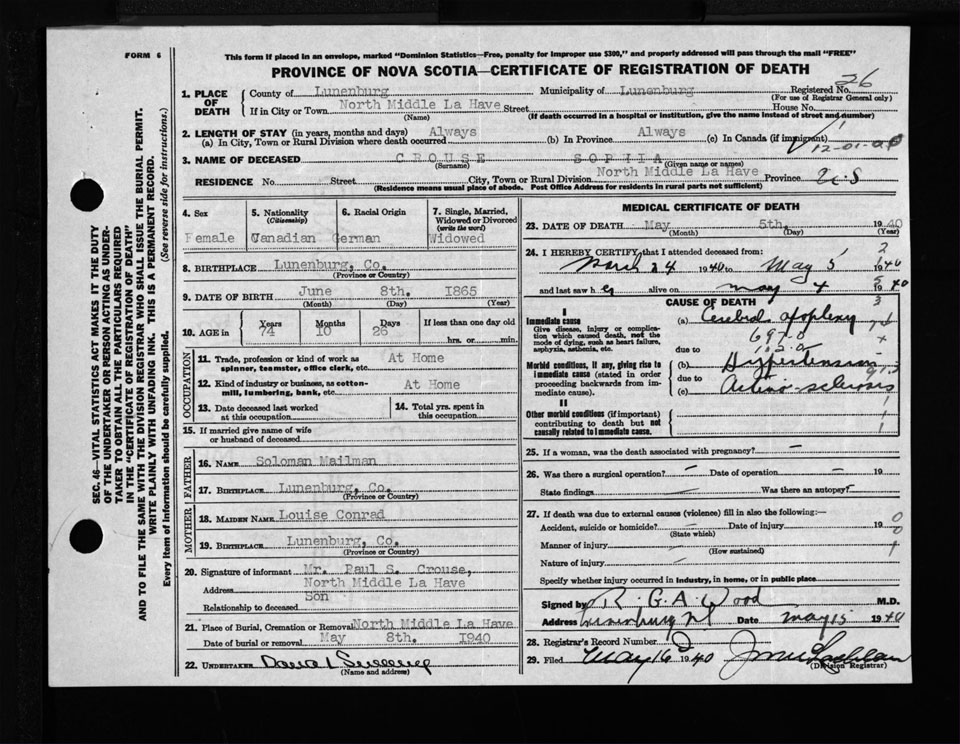 FORM 6
This form if placed in an envelope, marked "Dominion Statistics—Free, penalty for improper use $300," and properly addressed will pass through the mail "FREE"
PROVINCE OF NOVA SCOTIA—CERTIFICATE OF REGISTRATION OF DEATH
26
1. PLACE OF DEATH
County of Lunenburg Municipality of Lunenburg Registered No.
(For use of Registrar General only)
If in City or Town North Middle La Have Street House No.
(Name) (If death occurred in a hospital or institution, give the name instead of street and number)
2. LENGTH OF STAY (in years, months and days)
(a) In City, Town or Rural Division where death occurred Always (b) In Province Always (c) In Canada (if immigrant)
3. NAME OF DECEASED CROUSE SOPHIA
(Surname) (Given name or names)
RESIDENCE No. Street City, Town or Rural Division North Middle La Have Province
(Residence means usual place of abode. Post Office Address for residents in rural parts not sufficient)
4. Sex Female
5. Nationality (Citizenship) Canadian
6. Racial Origin German
7. Single, Married, Widowed or Divorced (write the word) Widowed
8. BIRTHPLACE Lunenburg, Co.
(Province or Country)
9. DATE OF BIRTH June 8th. 1865
(Month) (Day) (Year)
10. AGE in Years 74 Months 10 Days 26 If less than one day old hrs. or min.
OCCUPATION
11. Trade, profession or kind of work as spinner, teamster, office clerk, etc. At Home
12. Kind of industry or business, as cotton-mill, lumbering, bank, etc. At Home
13. Date deceased last worked at this occupation
14. Total yrs. spent in this occupation
15. If married give name of wife or husband of deceased
FATHER
16. NAME Soloman Mailman
17. BIRTHPLACE Lunenburg, Co.
(Province or Country)
MOTHER
18. MAIDEN NAME Louise Conrad
19. BIRTHPLACE Lunenburg, Co.
(Province or Country)
20. Signature of informant Mr. Paul S. Crouse,
Address North Middle La Have
Relationship to deceased Son
21. Place of Burial, Cremation or Removal North Middle La Have
Date of burial or removal May 8th. 1940
22. UNDERTAKER
(Name and address)
MEDICAL CERTIFICATE OF DEATH
23. DATE OF DEATH May 5th, 1940
(Month) (Day) (Year)
24. I HEREBY CERTIFY that I attended deceased from:
24 1940 to May 5 1940
and last saw her alive on May 4 1940
CAUSE OF DEATH
I
Immediate cause
Give disease, injury or complication which caused death, not the mode of dying, such as heart failure, asphyxia, asthenia, etc.
(a) Cerebral apoplexy
due to
Morbid conditions, if any, giving rise to immediate cause (stated in order proceeding backwards from immediate cause).
(b) Hypertension
due to
(c) Arterio-sclerosis
II
Other morbid conditions (if important) contributing to death but not causally related to immediate cause.
25. If a woman, was the death associated with pregnancy? —
26. Was there a surgical operation? — Date of operation — 19
State findings — Was there an autopsy?
27. If death was due to external causes (violence) fill in also the following:—
Accident, suicide or homicide? — Date of injury 19
(State which)
Manner of injury —
(How sustained)
Nature of injury —
Specify whether injury occurred in industry, in home, or in public place
Signed by R. G. A. Wood M.D.
Address Lunenburg NS Date May 15 1940
28. Registrar's Record Number
29. Filed May 16 1940
(Division Registrar)
SEC. 46—VITAL STATISTICS ACT MAKES IT THE DUTY
OF THE UNDERTAKER OR PERSON ACTING AS UNDER-
TAKER TO OBTAIN ALL THE PARTICULARS REQUIRED
IN THE "CERTIFICATE OF REGISTRATION OF DEATH"
AND TO FILE THE SAME WITH THE DIVISION REGISTRAR WHO SHALL ISSUE THE BURIAL PERMIT.
WRITE PLAINLY WITH UNFADING INK. THIS IS A PERMANENT RECORD.
Every item of information should be carefully supplied. (See reverse side for instructions.)